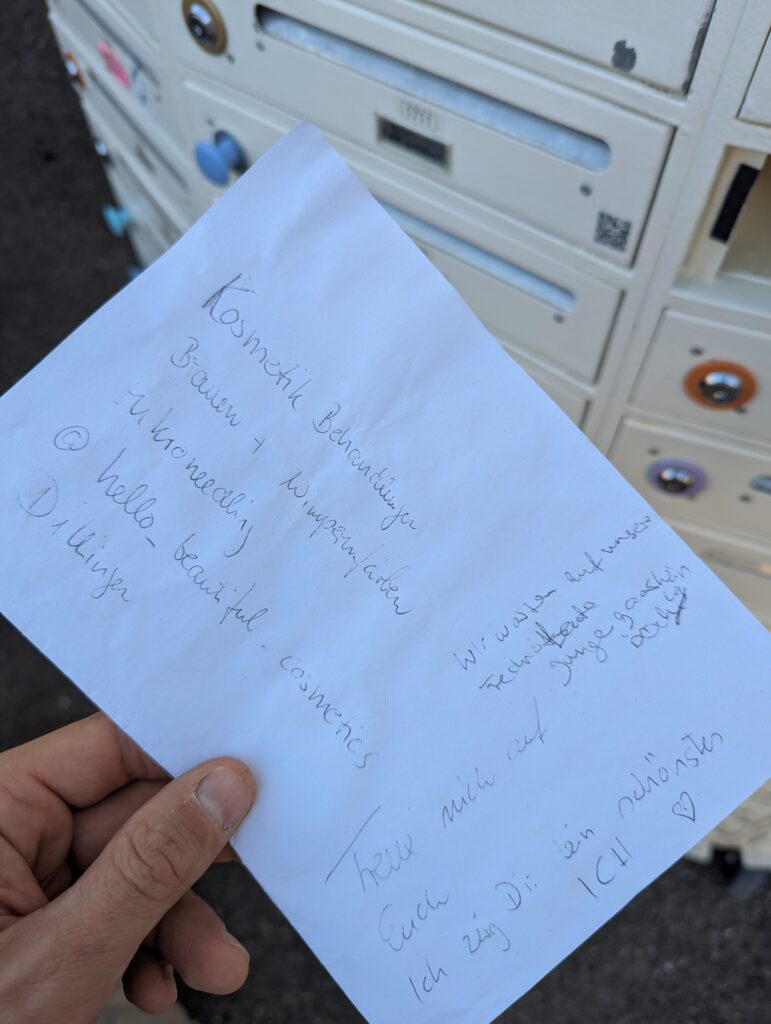 Kosmetik Behandlungen
Brauen + Wimpernfärben
Mikroneedling
@ hello_beautiful_cosmetics
Dillinger
Wir warten auf unsere
Junge
freue mich auf
Euch
Ich zeig Dir dein schönstes
ICH ♡